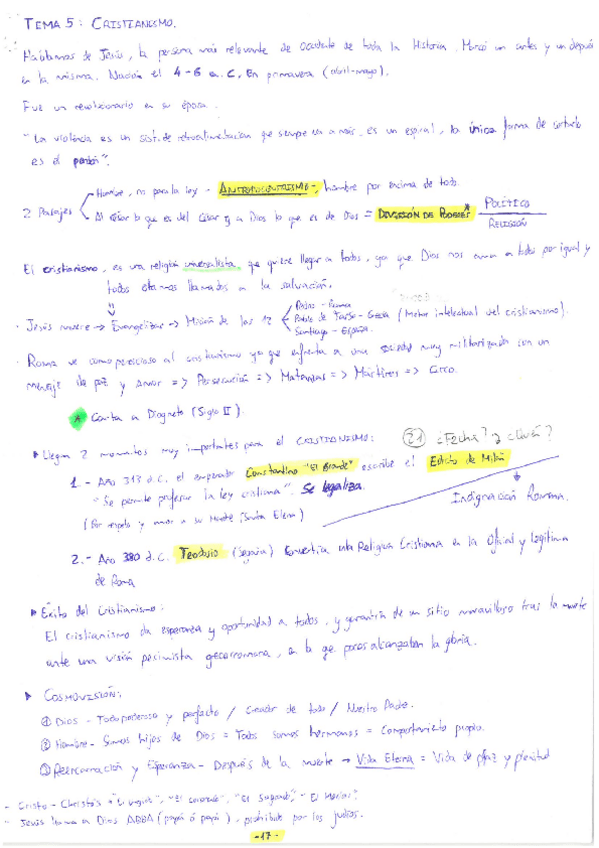 TEMA 5: CRISTIANISMO.
Hablamos de Jesús, la persona más relevante de occidente de toda la Historia. Marcó un antes y un después
en la misma. Nació en el 4-6 a.C. En primavera (abril-mayo).
Fue un revolucionario en su época.
"La violencia es un sist. de retroalimentación que siempre va a más, es un espiral, la única forma de cortarlo
es el perdón".
2 Pasajes
Hombre, no para la ley - ANTROPOCENTRISMO -, hombre por encima de todo.
Al César lo que es del César y a Dios lo que es de Dios = DIVISIÓN DE PODERES* POLÍTICO
RELIGIÓN
El cristianismo, es una religión universalista, que quiere llegar a todos, ya que Dios nos ama a todos por igual y
todos estamos llamados a la salvación.
· Jesús muere → Evangelizar → Misión de los 12
Pedro - Roma
Pablo de Tarso - Grecia (Motor intelectual del cristianismo).
Santiago - España.
· Roma ve como pernicioso al cristianismo ya que enfrenta a una sociedad muy militarizada con un
mensaje de paz y Amor => Persecución => Matanzas => Mártires => Circo.
* Carta a Diogneto (Siglo II).
▸ Llegan 2 momentos muy importantes para el CRISTIANISMO: ¿Fecha? y
1.- Año 313 d.C. el emperador Constantino "El Grande" escribe el Edicto de Milán
"Se permite profesar la ley cristiana". Se legaliza.
(Por respeto y amor a su madre (Santa Elena)
Indignación Romana.
2.- Año 380 d.C. Teodosio (Segovia) Convertía la Religión Cristiana en la Oficial y Legítima
de Roma
▸ Éxito del Cristianismo:
El cristianismo da esperanza y oportunidad a todos, y garantía de un sitio maravilloso tras la muerte
ante una visión pesimista grecorromana, en la que pocos alcanzaban la gloria.
▸ COSMOVISIÓN:
① Dios - Todopoderoso y perfecto / Creador de todo / Nuestro Padre.
② Hombre - Somos hijos de Dios = Todos somos hermanos = Comportamiento propio.
③ Reencarnación y Esperanza - Después de la muerte → Vida Eterna = Vida de paz y plenitud
- Cristo - Christós = "El ungido", "El "El Sagrado", "El Mesías".
- Jesús llama a Dios ABBA (papá ó papi), prohibido por los judíos.
-17-